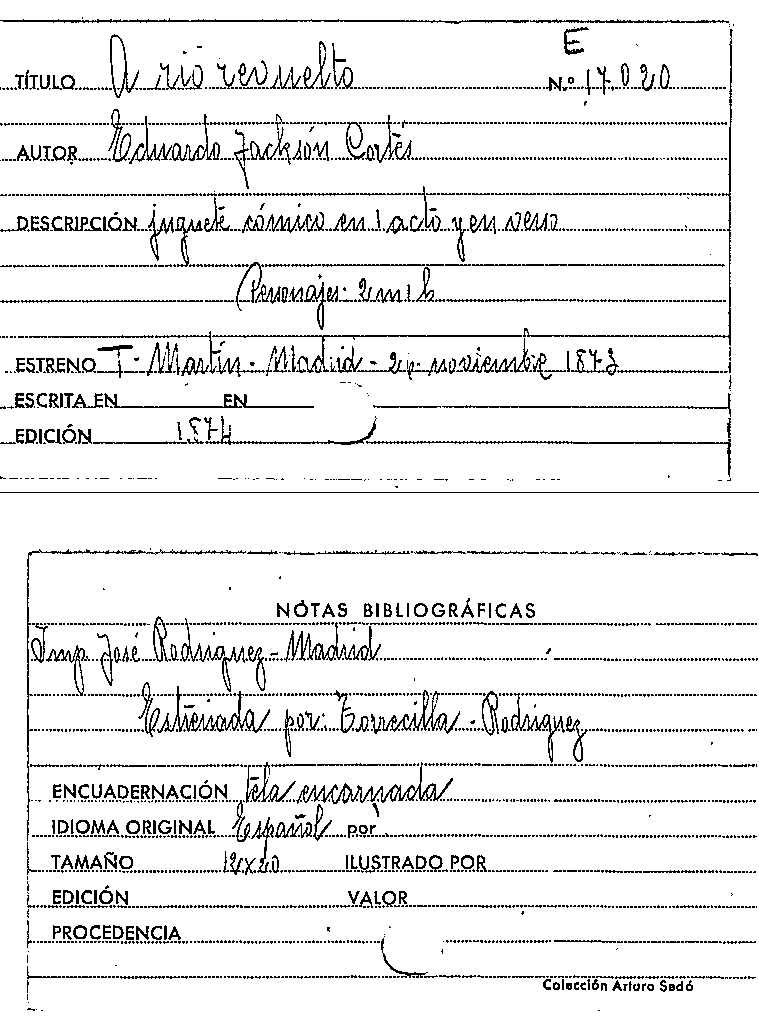 E
TÍTULO A rio revuelto N.º 17.020
AUTOR Eduardo Jacksón Cortés
DESCRIPCIÓN juguete cómico en 1 acto y en verso
Personajes: 2 m 1 h
ESTRENO T. Martín - Madrid - noviembre 1873
ESCRITA EN EN
EDICIÓN 1874
NOTAS BIBLIOGRÁFICAS
Imp. José Rodriguez - Madrid
Estrenada por: Torrecilla - Rodriguez
ENCUADERNACIÓN tela encarnada
IDIOMA ORIGINAL Español por
TAMAÑO 12x20 ILUSTRADO POR
EDICIÓN VALOR
PROCEDENCIA
Colección Arturo Sedó